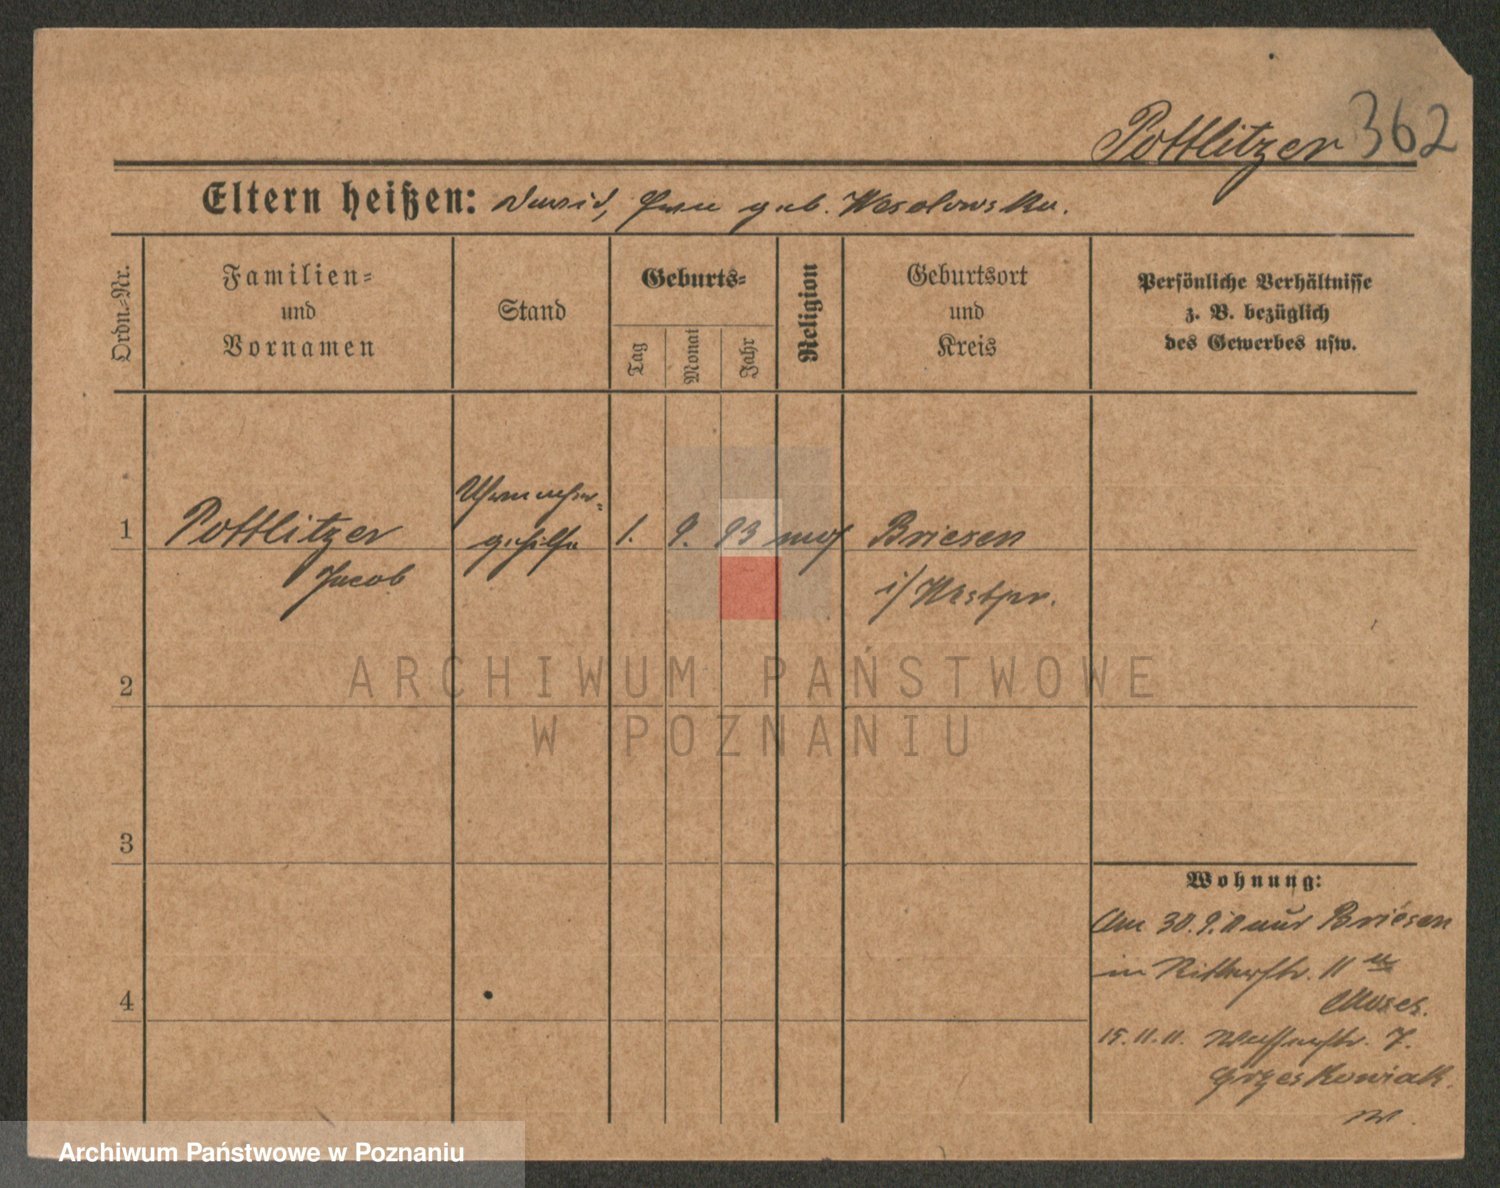 Pottlitzer 362
Eltern heißen: David, geb. Wesolowska.
Ordn.-Nr.
Familien-
und
Vornamen
Stand
Geburts-
Tag
Monat
Jahr
Religion
Geburtsort
und
Kreis
Persönliche Verhältnisse
z. B. bezüglich
des Gewerbes usw.
1
Pottlitzer
Jacob
Uhrmacher-
gehilfe
1. 9. 93 mos
Briesen
i/ Westpr.
2
3
4
Wohnung:
Am 30.9.11 aus Briesen
in Ritterstr. 11
Moses.
15.11.11. 7.
Grzeskowiak.
ARCHIWUM PAŃSTWOWE
W POZNANIU
Archiwum Państwowe w Poznaniu